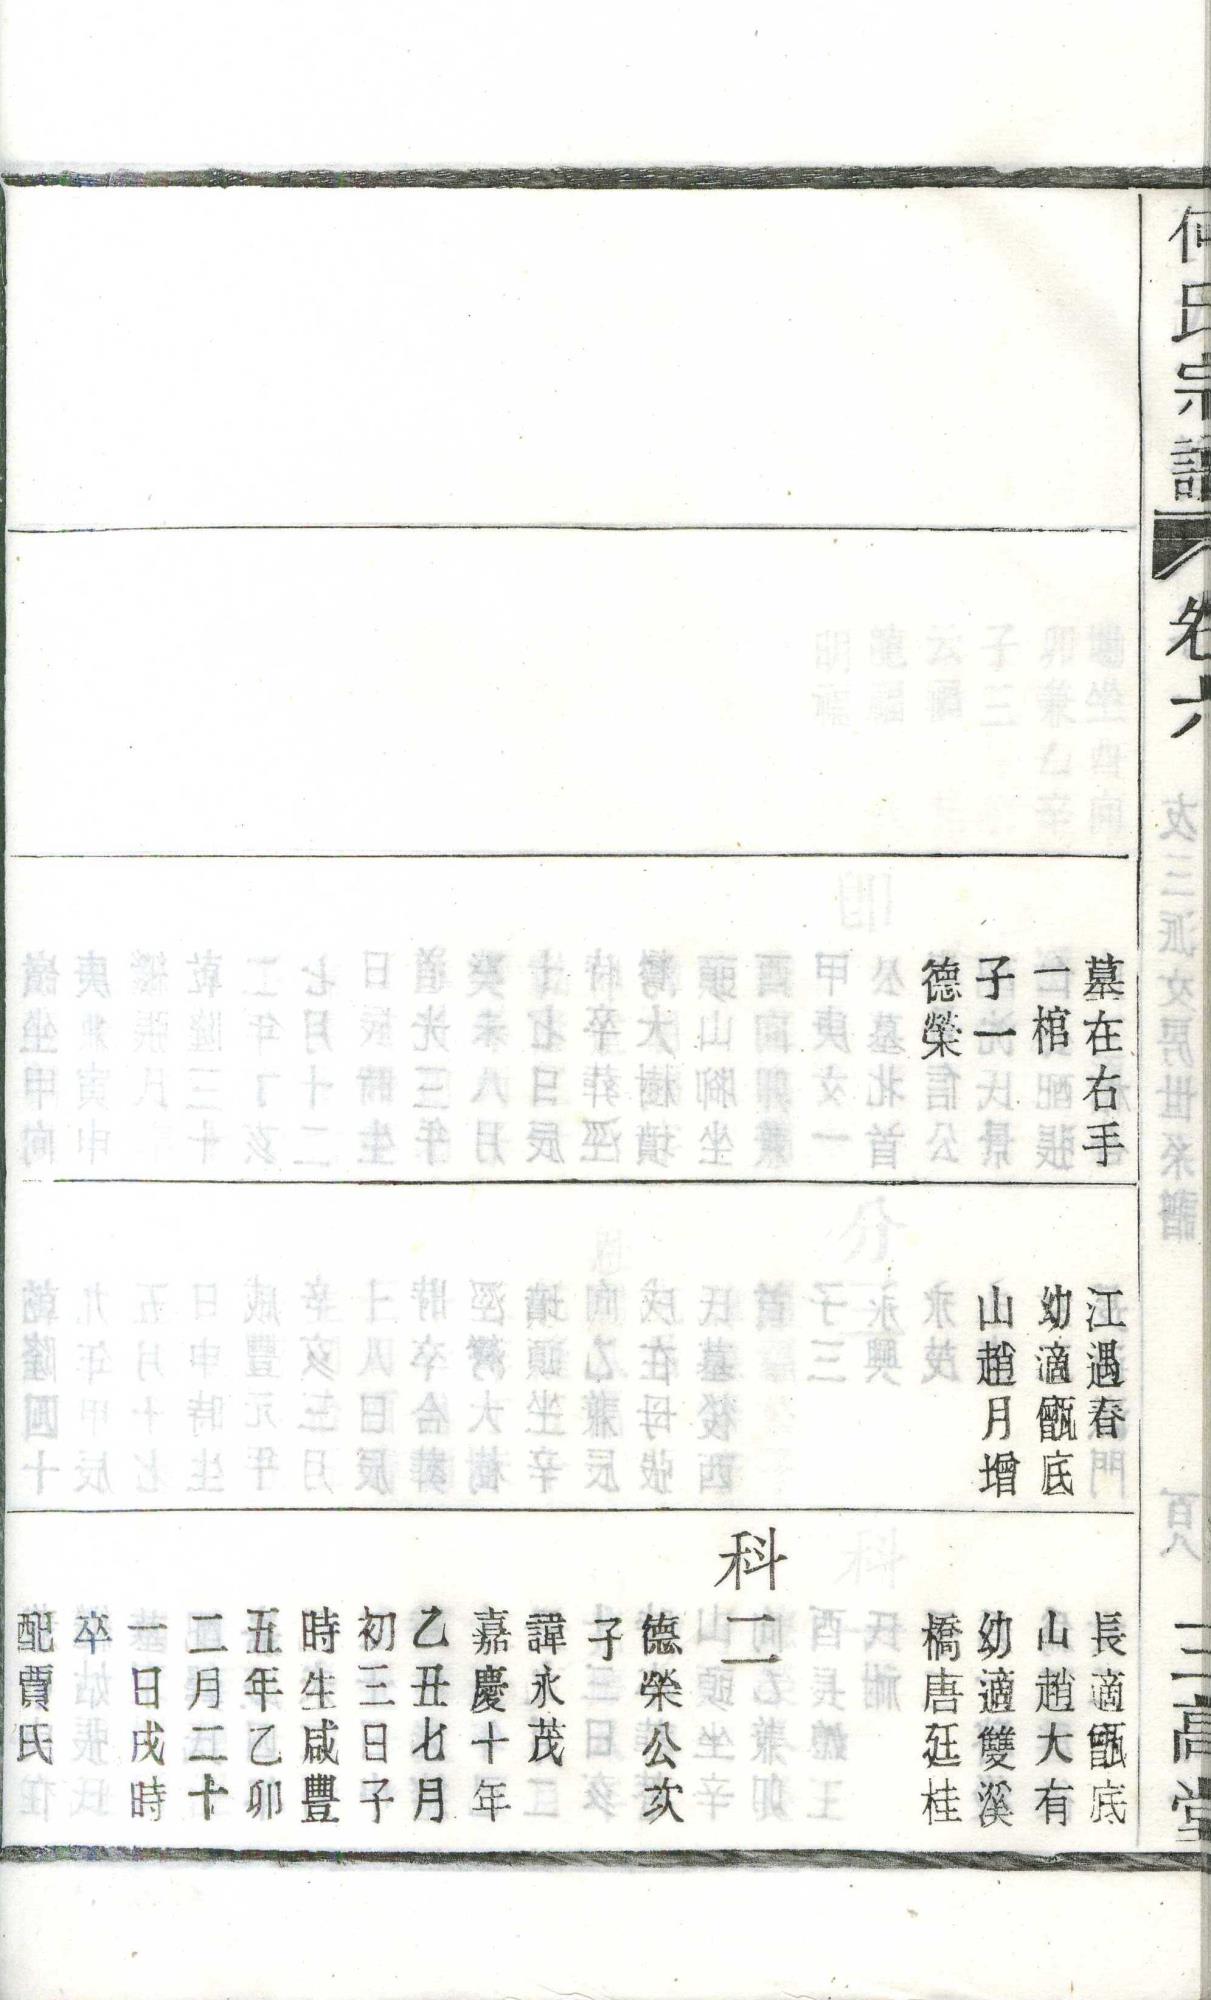 何氏宗譜
卷六
三高堂
墓在右手
一棺
子一
德榮
江遇春
幼適甑底
山趙月增
長適甑底
山趙大有
幼適雙溪
橋唐廷桂
科二
德榮公次
子
諱永茂
嘉慶十年
乙丑七月
初三日子
時生咸豐
五年乙卯
二月二十
一日戌時
卒
配賈氏